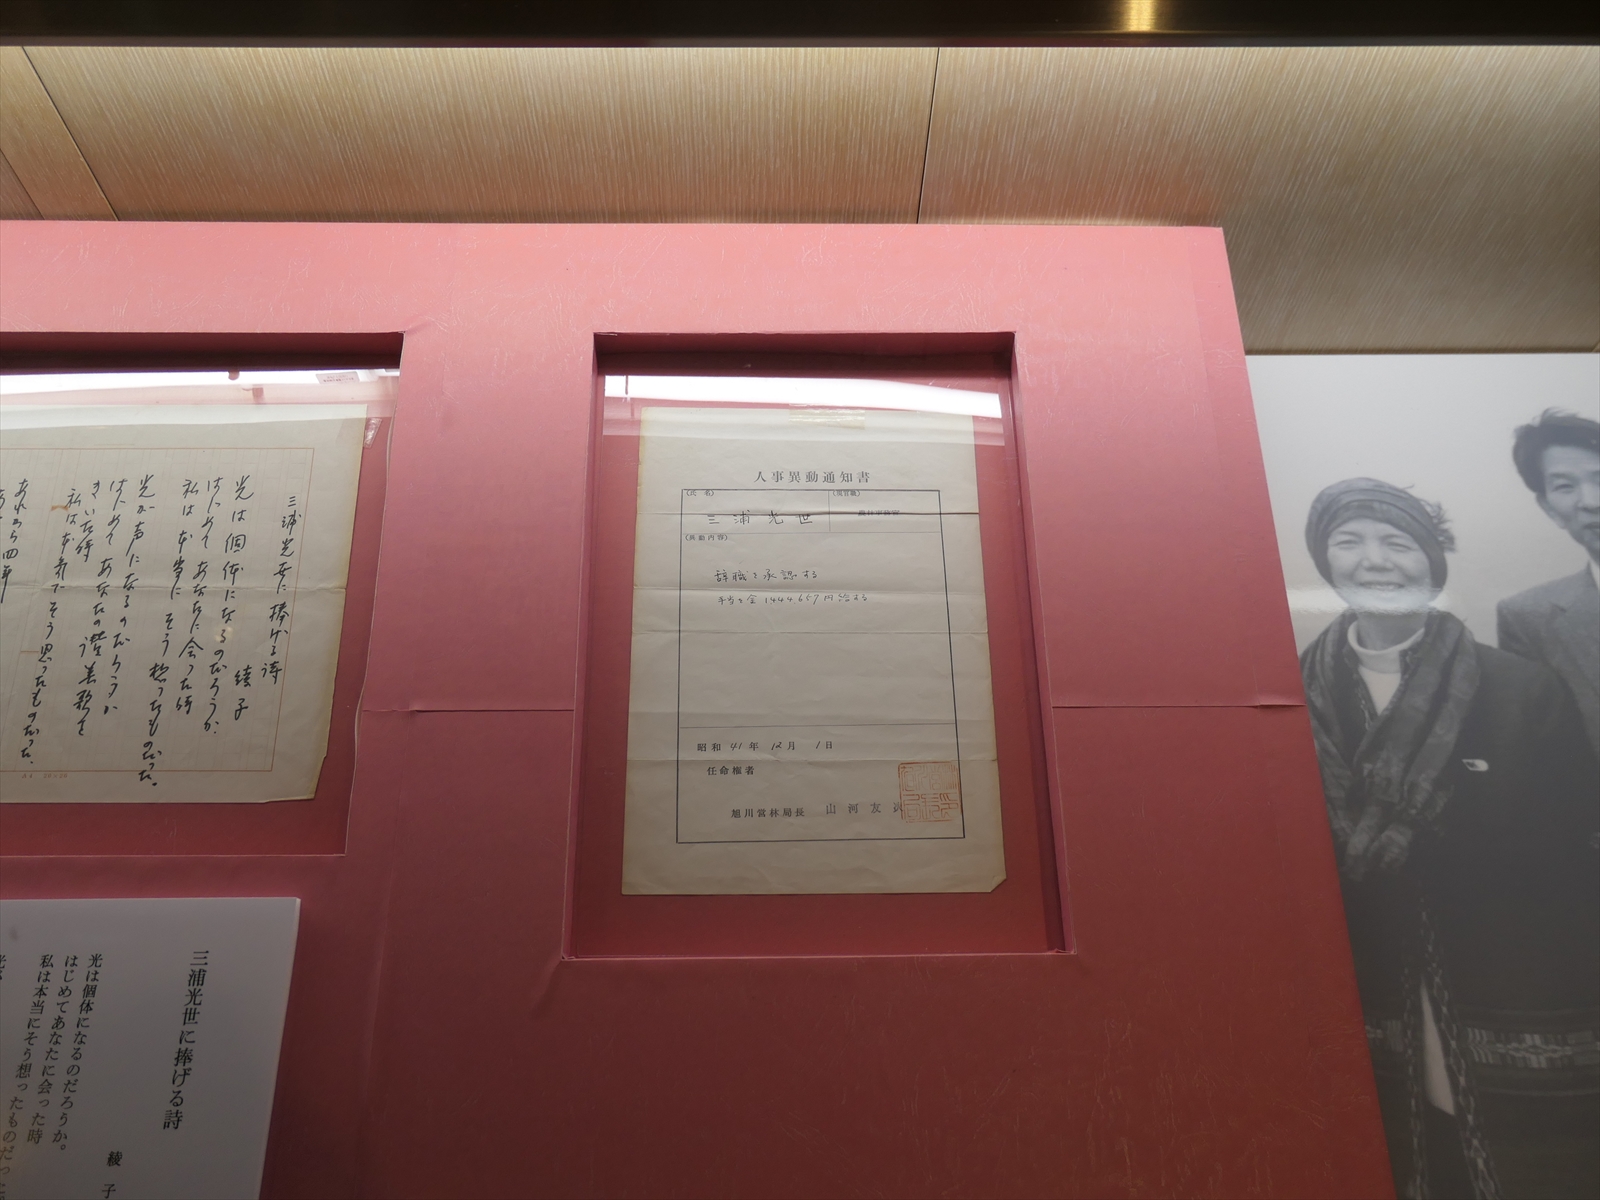 人事異動通知書
(氏名)
(現官職)
三浦光世
(異動内容)
辞職を承認する
手当を金1444657円給する
昭和41年12月1日
任命権者
旭川営林局長 山河友次
三浦光世に捧げる詩
綾子
光は個体になるのだろうか、
はじめてあなたに会った時
私は本当にそう想ったものだった。
光が声になるのだろうか
はじめてあなたの讃美歌を
きいた時
私は本気でそう思ったものだった。
あれから四年
三浦光世に捧げる詩
綾子
光は個体になるのだろうか。
はじめてあなたに会った時
私は本当にそう想ったものだっ